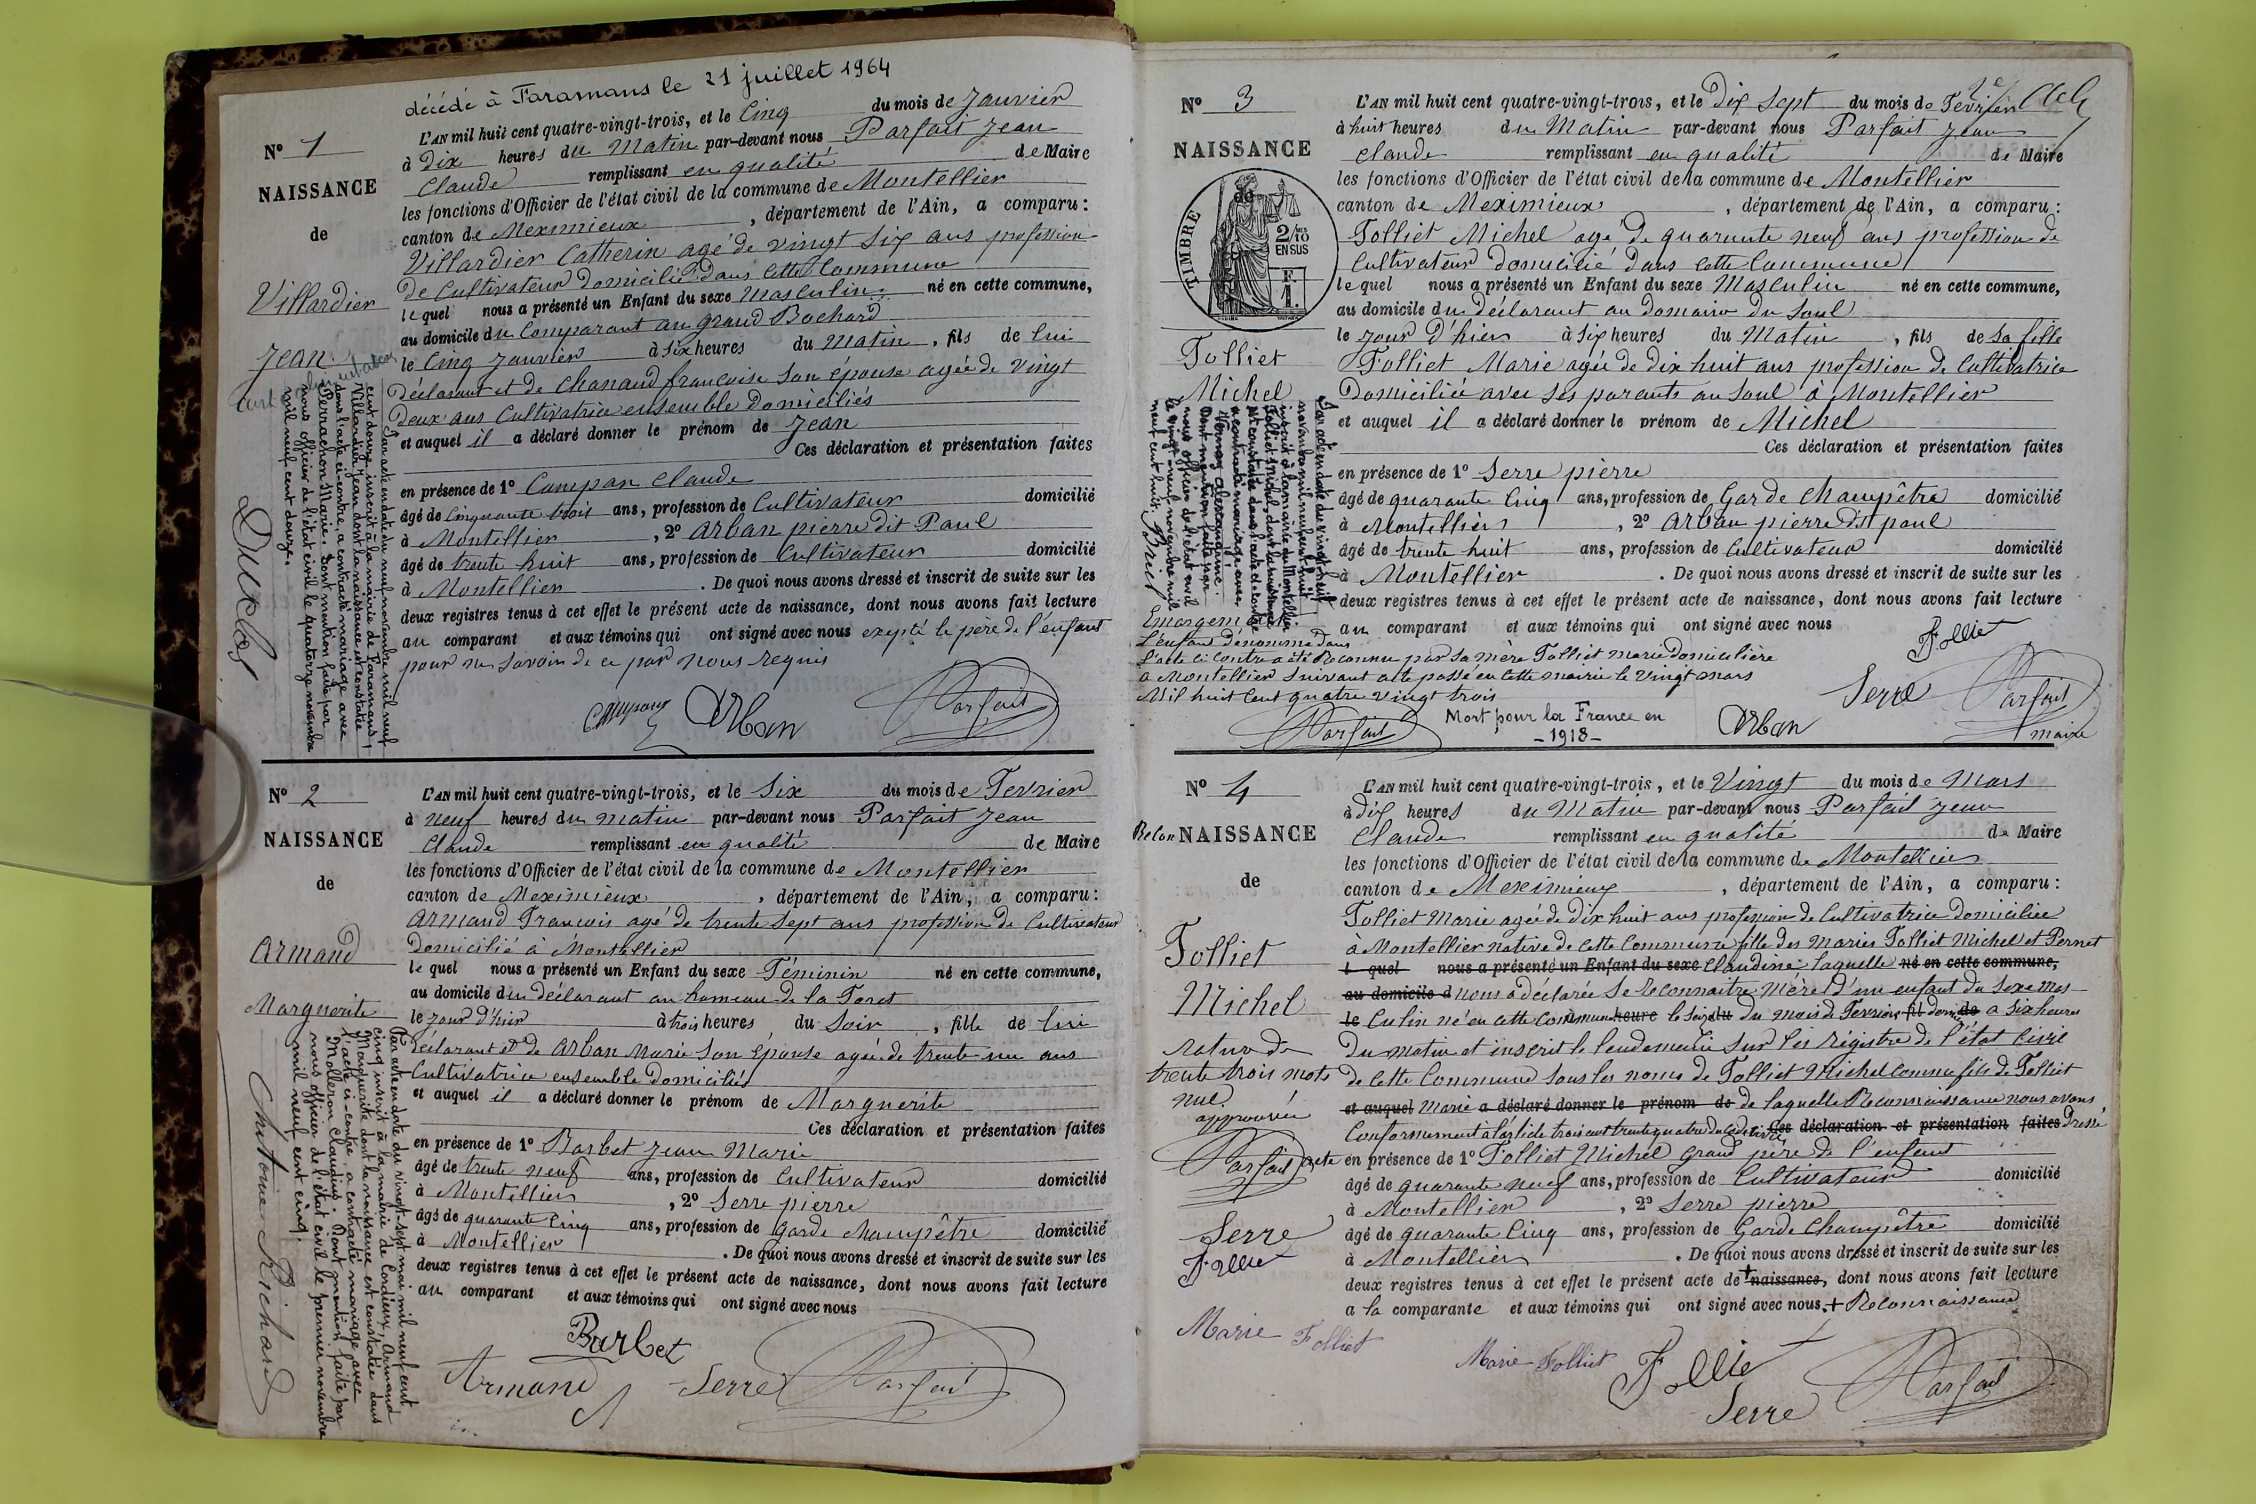 décédé à Faramans le 21 juillet 1964
L'AN mil huit cent quatre-vingt-trois, et le Cinq du mois de Janvier
à Dix heures du Matin par-devant nous Parfait Jean
Claude remplissant en qualité de Maire
les fonctions d'Officier de l'état civil de la commune de Montellier
canton de Meximieux, département de l'Ain, a comparu:
Villardier Catherin agé de vingt six ans profession
de Cultivateur Domicilié dans Cette Commune
le quel nous a présenté un Enfant du sexe Masculin né en cette commune,
au domicile du Comparant au grand Bochard
le Cinq Janvier à Six heures du Matin, fils de lui
Déclarant et de Chanaud françoise Son épouse agée de vingt
Deux ans Cultivatrice ensemble Domiciliés
et auquel il a déclaré donner le prénom de Jean
Ces déclaration et présentation faites
en présence de 1º Campan Claude
âgé de Cinquante trois ans, profession de Cultivateur domicilié
à Montellier, 2º Arban pierre dit Paul
âgé de trente huit ans, profession de Cultivateur domicilié
à Montellier. De quoi nous avons dressé et inscrit de suite sur les
deux registres tenus à cet effet le présent acte de naissance, dont nous avons fait lecture
au comparant et aux témoins qui ont signé avec nous exepté le père de l'enfant
pour ne savoir de ce par nous requis
Campan Arban Parfait
Nº 1
NAISSANCE
de
Villardier
Jean
Par acte en date du neuf novembre mil neuf
cent douze inscrit à la mairie de Faramans,
Villardier Jean dont la naissance est constatée
dans l'acte ci-contre, a contracté mariage avec
Perrachon Marie. Dont mention faite par
nous officier de l'état civil le quatorze novembre
mil neuf cent douze.
Duclos
Nº 2
NAISSANCE
de
Armand
Marguerite
L'AN mil huit cent quatre-vingt-trois, et le Six du mois de Fevrier
à neuf heures du matin par-devant nous Parfait Jean
Claude remplissant en qualité de Maire
les fonctions d'Officier de l'état civil de la commune de Montellier
canton de Meximieux, département de l'Ain, a comparu:
Armand François agé de trente Sept ans profession de Cultivateur
Domicilié à Montellier
le quel nous a présenté un Enfant du sexe Féminin né en cette commune,
au domicile du déclarant au hameau de la Foret
le jour d'hier à trois heures du Soir, fille de lui
déclarant et de Arban Marie Son épouse agée de trente un ans
Cultivatrice ensemble Domiciliés
et auquel il a déclaré donner le prénom de Marguerite
Ces déclaration et présentation faites
en présence de 1º Barbet Jean Marie
âgé de trente neuf ans, profession de Cultivateur domicilié
à Montellier, 2º Serre pierre
âgé de quarante Cinq ans, profession de garde champêtre domicilié
à Montellier. De quoi nous avons dressé et inscrit de suite sur les
deux registres tenus à cet effet le présent acte de naissance, dont nous avons fait lecture
au comparant et aux témoins qui ont signé avec nous
Barbet
Armand Serre Parfait
Par acte en date du vingt-sept mai mil neuf cent
cinq inscrit à la mairie de Cordieux, Armand
Marguerite dont la naissance est constatée dans
l'acte ci-contre, a contracté mariage avec
Molleron Claudius. Dont mention faite par
nous officier de l'état civil le premier novembre
mil neuf cent cinq.
Antoine Richard
Nº 3
NAISSANCE
de
TIMBRE
2/10
EN SUS
Folliet
Michel
L'AN mil huit cent quatre-vingt-trois, et le Dix Sept du mois de Fevrier
à huit heures du Matin par-devant nous Parfait Jean
Claude remplissant en qualité de Maire
les fonctions d'Officier de l'état civil de la commune de Montellier
canton de Meximieux, département de l'Ain, a comparu:
Folliet Michel agé de quarante neuf ans profession de
Cultivateur domicilié dans Cette Commune
le quel nous a présenté un Enfant du sexe Masculin né en cette commune,
au domicile du Déclarant au Domaine du Soul
le jour D'hier à Six heures du Matin, fils de Sa fille
Folliet Marie agée de dix huit ans profession de Cultivatrice
Domiciliée avec Ses parants au Soul à Montellier
et auquel il a déclaré donner le prénom de Michel
Ces déclaration et présentation faites
en présence de 1º Serre pierre
âgé de quarante Cinq ans, profession de Garde Champêtre domicilié
à Montellier, 2º Arban pierre dit paul
âgé de trente huit ans, profession de Cultivateur domicilié
à Montellier. De quoi nous avons dressé et inscrit de suite sur les
deux registres tenus à cet effet le présent acte de naissance, dont nous avons fait lecture
au comparant et aux témoins qui ont signé avec nous
Folliet
Serre Parfait
Arban maire
Par acte en date du vingt huit
novembre mil neuf cent huit
inscrit à la mairie de Montellier
Folliet Michel, dont la naissance
est constatée dans l'acte ci-contre
a contracté mariage avec
Dont mention faite par
nous officier de l'état civil
le vingt neuf novembre mil
neuf cent huit.
L'enfant dénommé dans
l'acte ci Contre a été Reconnu par Sa mère Folliet marie Domicilière
a Montellier Suivant acte passé en Cette mairie le Vingt mars
Mil huit Cent quatre Vingt trois
Parfait
Mort pour la France en
-1918-
Nº 4
Recon NAISSANCE
de
Folliet
Michel
rature de
trente trois mots
nul
approuvée
Parfait
Serre
Folliet
Marie Folliet
L'AN mil huit cent quatre-vingt-trois, et le Vingt du mois de Mars
à dix heures du Matin par-devant nous Parfait Jean
Claude remplissant en qualité de Maire
les fonctions d'Officier de l'état civil de la commune de Montellier
canton de Meximieux, département de l'Ain, a comparu:
Folliet Marie agée de Dix huit ans profession de Cultivatrice Domiciliée
a Montellier native de Cette Commune fille des Maries Folliet Michel et Pernet
quel nous a présenté un Enfant du sexe Claudine laquelle né en cette commune,
au domicile d nous a déclarée Se Reconnaitre Mère d'un enfant du Sexe Mas
le Culin né en Cette Commune heure le Seize du du mois de Fevrier fil dernier de a Six heures
Du matin et inscrit le lendemain Sur les Régistre de l'état Civil
de Cette Commune Sous les noms de Folliet Michel comme fils de Folliet
et auquel Marie a déclaré donner le prénom de de laquelle Reconnaissance nous avons
Conformément à l'article trois cent trente quatre du Code Civil Ces déclaration et présentation faites Dressé
acte en présence de 1º Folliet Michel Grand père de l'enfant
âgé de quarante neuf ans, profession de Cultivateur domicilié
à Montellier, 2º Serre pierre
âgé de quarante Cinq ans, profession de Garde Champêtre domicilié
à Montellier. De quoi nous avons dressé et inscrit de suite sur les
deux registres tenus à cet effet le présent acte de + naissance, dont nous avons fait lecture
a la comparante et aux témoins qui ont signé avec nous. + Reconnaissance
Marie Folliet Folliet Parfait
Serre